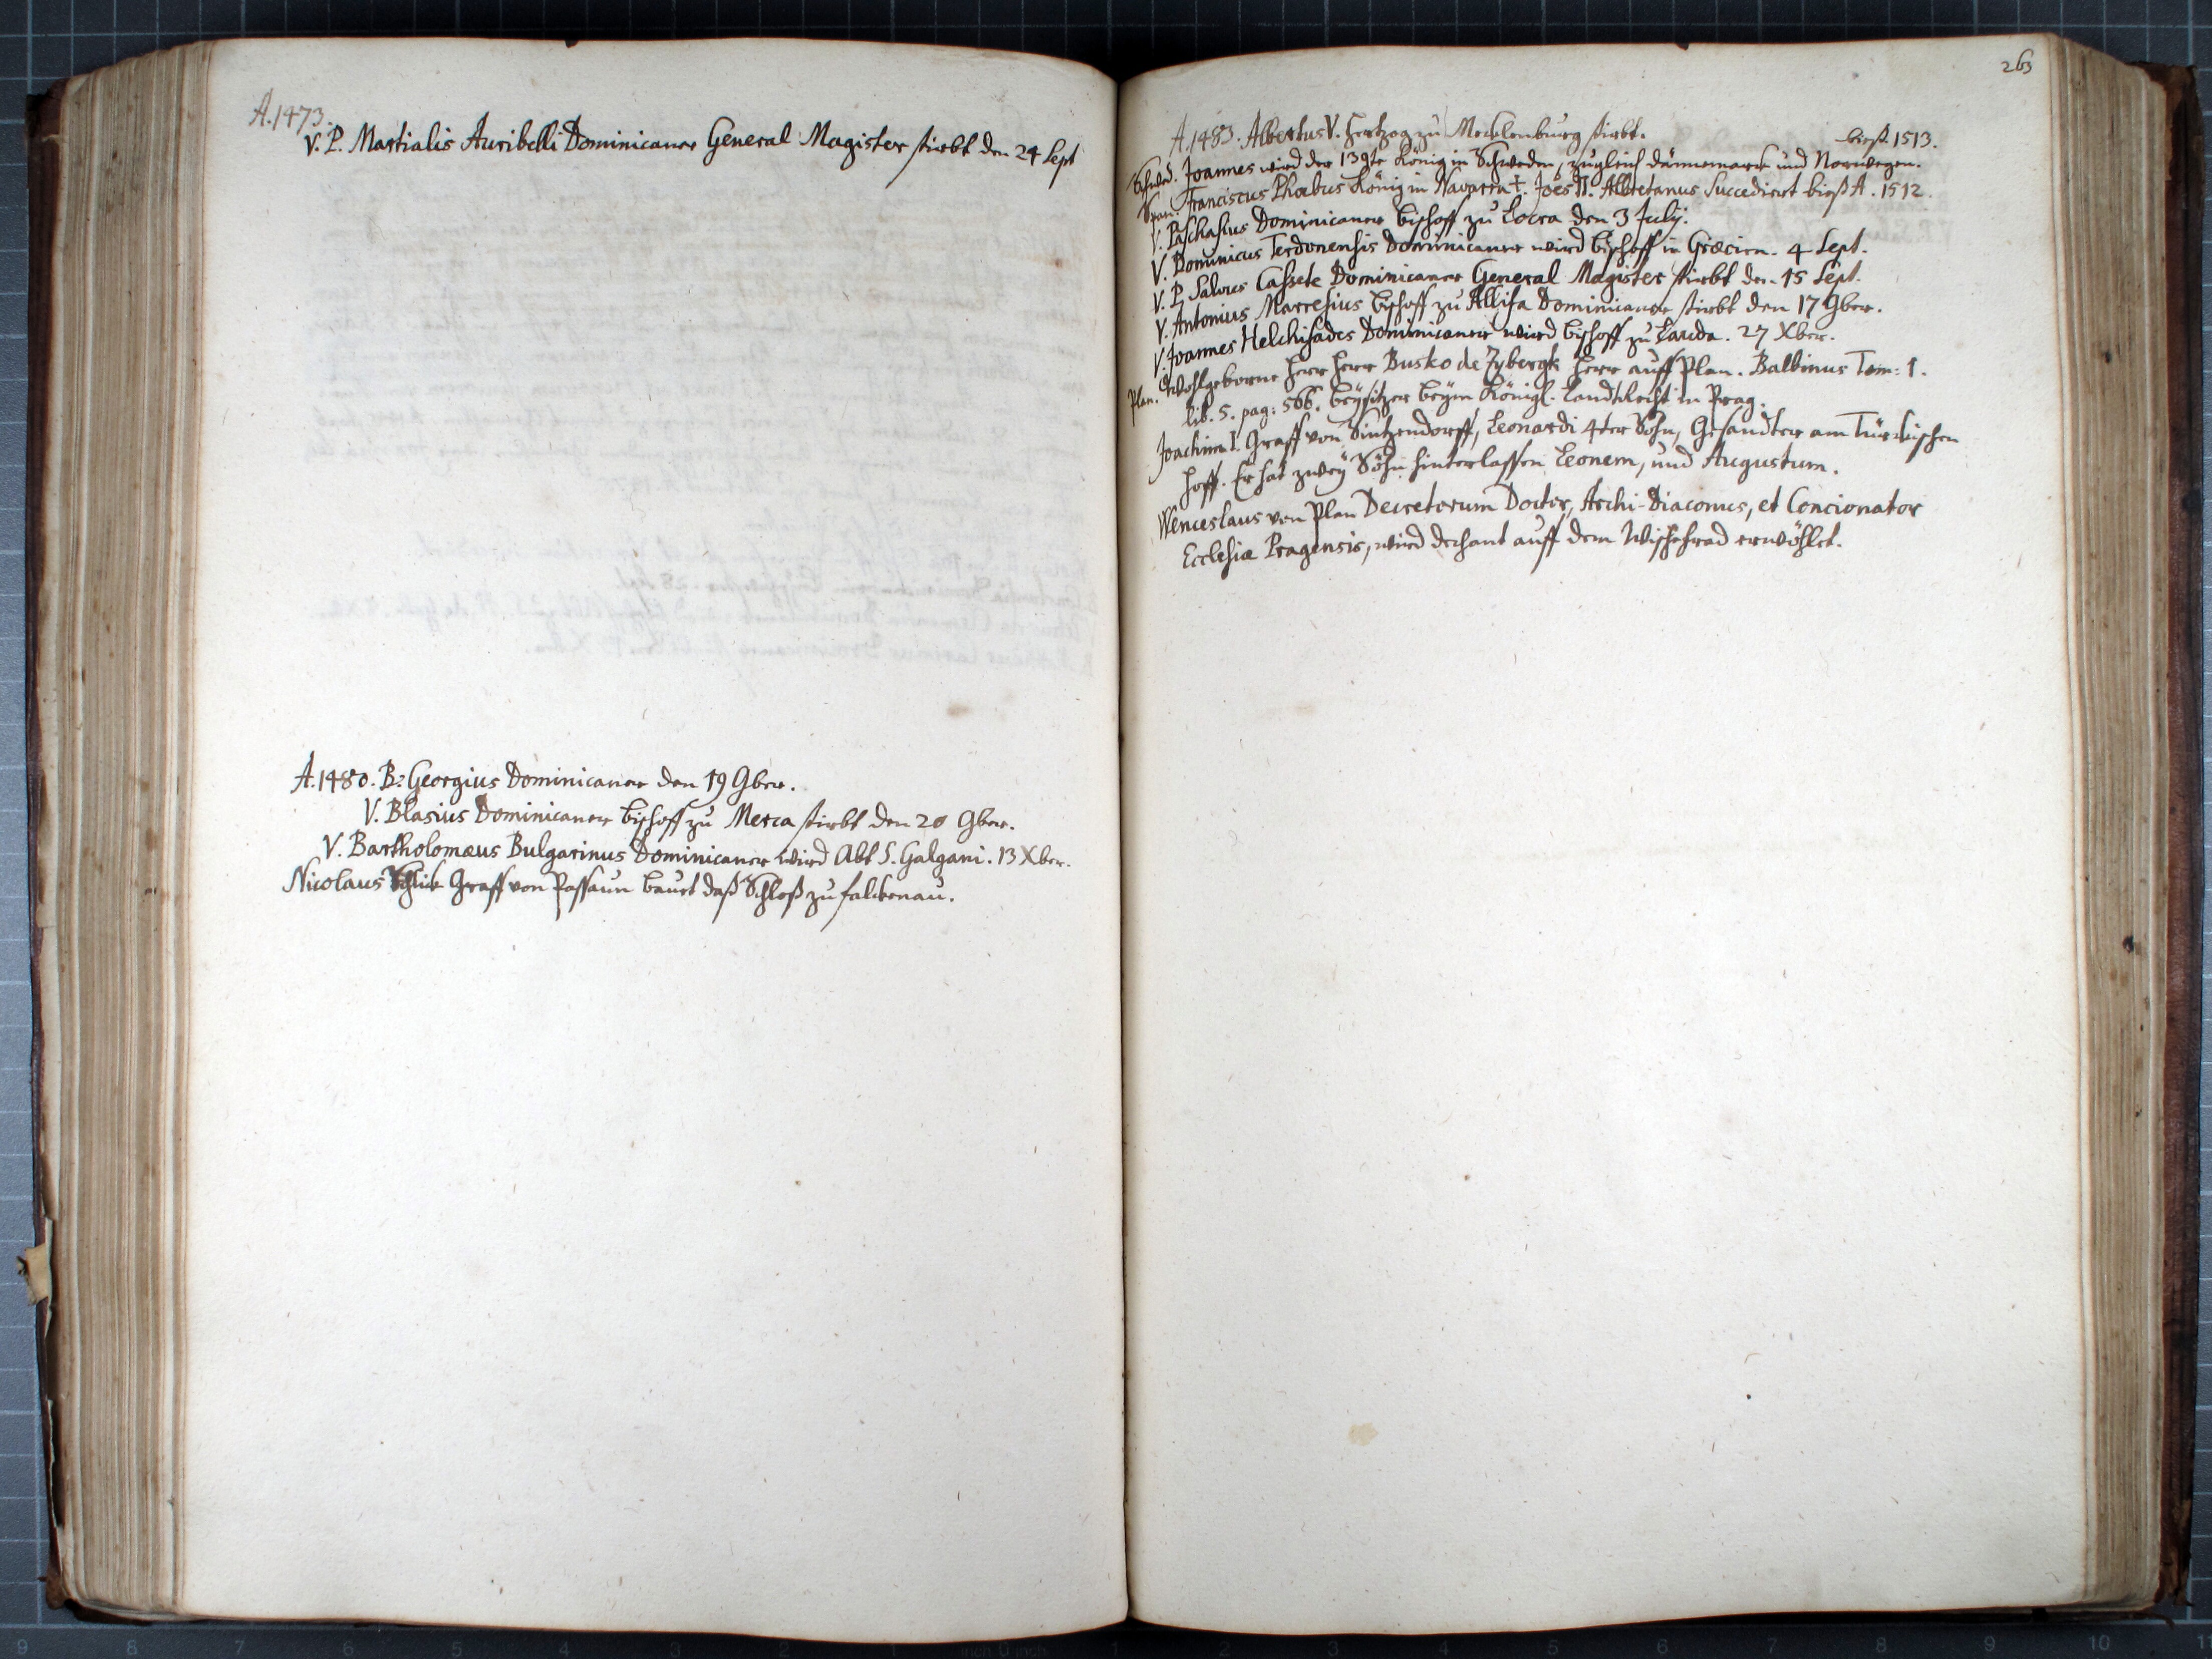 A. 1473.
V. P. Martialis Auribelli Dominicaner General Magister stirbt den 24 Sept
A. 1480. B: Georgius Dominicaner den 19 9ber.
V. Blasius Dominicaner Bischoff zu Merca stirbt den 20 9ber.
V. Bartholomæus Bulgarinus Dominicaner wird Abt S. Galgani. 13 Xber.
Nicolaus Schlick Graff von Passaun bauet daß Schloß zu falckenau.
263
A. 1483. Albertus V. Hertzog zu Mecklenburg stirbt.
bieß. 1513.
Schwed. Joannes wird der 139te König in Schweden, zugleich dännemarck und Norwegen.
Span. Franciscus Phœbus König in Navarra †. Joes II. Albretanus Succediert bieß A. 1512.
V. Paschasius Dominicaner Bischoff zu Locra den 3 July.
V. Dominicus Terdonensis Dominicaner wird Bischoff in Græcien. 4 Sept.
V. P. Salvus Cassete Dominicaner General Magister stirbt den 15 Sept.
V. Antonius Marresius Bischoff zu Allifa Dominicaner stirbt den 17 9ber.
V. Joannes Helchisades Dominicaner wird Bischoff zu Lauda. 27 Xber.
Plan. Wohlgeborne Herr Herr Busko de Zybergk Herr auff Plan. Balbinus Tom: 1.
lib. 5. pag: 566. beysitzer beym Königl. Landtrecht in Prag.
Joachim I. Graff von Sintzendorff, Leonardi 4ter Sohn, Gesandter am Türckischen
Hoff. Er hat zwey Söhn hinterlassen Leonem, und Augustum.
Wenceslaus von Plan Decretorum Doctor, Archi-Diaconus, et Concionator
Ecclesiæ Pragensis, wird dechant auff dem Wischehrad erwöhlet.